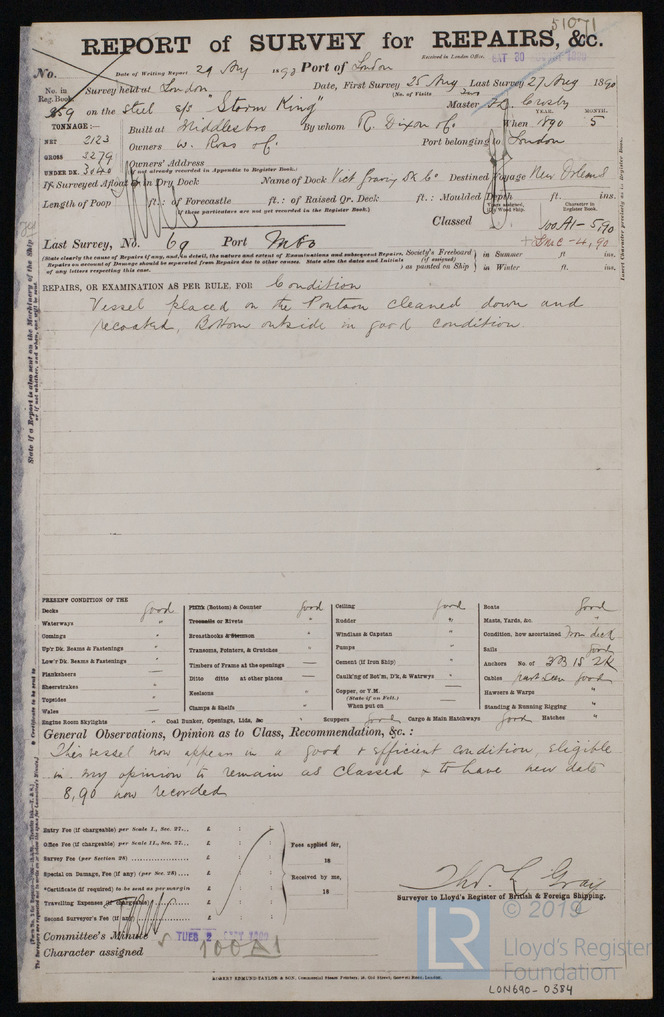 51071
REPORT of SURVEY for REPAIRS, &c.
Received in London Office,
No. Date of Writing Report 29 Aug 1890 Port of London
No. in Reg. Book. Survey held at London Date, First Survey 25 Aug Last Survey 27 Aug 1890
(No. of Visits Two
on the Steel s/s "Storm King" Master Crosby
TONNAGE:—
NET 2123
GROSS 3279
UNDER DK. 3040
Built at Middlesbro By whom R. Dixon & Co. When 1890 5
YEAR. MONTH.
Owners W. Ross & Co. Port belonging to London
Owners' Address
(if not already recorded in Appendix to Register Book.)
If Surveyed Afloat or in Dry Dock Name of Dock Vict Graving Dk Co Destined Voyage New Orleans
Length of Poop ft.: of Forecastle ft.: of Raised Qr. Deck ft.: Moulded Depth ft. ins.
(if these particulars are not yet recorded in the Register Book.)
Years assigned, if Wood Ship. Character in Register Book.
Classed 100A1- 5,90
+LMC-4,90
Last Survey, No. 69 Port Mbo
(State clearly the cause of Repairs if any, and, in detail, the nature and extent of Examinations and subsequent Repairs. Repairs on account of Damage should be separated from Repairs due to other causes. State also the dates and Initials of any letters respecting this case.
Society's Freeboard (if assigned) as painted on Ship in Summer ft ins.
in Winter ft. ins.
REPAIRS, OR EXAMINATION AS PER RULE, FOR Condition
Vessel placed on the Pontoon cleaned down and
recoated, Bottom outside in good condition
PRESENT CONDITION OF THE
Decks good
Waterways "
Comings "
Up'r Dk. Beams & Fastenings "
Low'r Dk. Beams & Fastenings "
Planksheers
Sheerstrakes "
Topsides "
Wales "
Engine Room Skylights "
Plank (Bottom) & Counter good
Treenails or Rivets "
Breasthooks & Stemson "
Transoms, Pointers, & Crutches "
Timbers of Frame at the openings —
Ditto ditto at other places —
Keelsons
Clamps & Shelfs
Coal Bunker, Openings, Lids, &c "
Ceiling good
Rudder "
Windlass & Capstan "
Pumps "
Cement (if Iron Ship) —
Caulk'ng of Bot'm, D'k, & Waterwys —
Copper, or Y.M.
(State if on Felt.)
When put on
Scuppers good
Cargo & Main Hatchways good
Boats good
Masts, Yards, &c. "
Condition, how ascertained from deck
Sails good
Anchors No. of 3B 1S 2K
Cables part seen good
Hawsers & Warps "
Standing & Running Rigging "
Hatches "
General Observations, Opinion as to Class, Recommendation, &c. :
This vessel now appears in a good & efficient condition, eligible
in my opinion to remain as Classed & to have new date
8,90 now recorded
Entry Fee (if chargeable) per Scale I., Sec. 27... £ : :
Office Fee (if chargeable) per Scale II., Sec. 27... £ : :
Survey Fee (per Section 28) £ : :
Special on Damage, Fee (if any) (per Sec. 28) £ : :
*Certificate (if required) to be sent as per margin
Travelling Expenses (if chargeable) £ : :
Second Surveyor's Fee (if any) £ : :
Fees applied for, 18
Received by me, 18
Thos. L. Gray
Surveyor to Lloyd's Register of British & Foreign Shipping.
Committee's Minute TUES 2 SEPT 1890
Character assigned 100A1
© 2019
LR
Lloyd's Register
Foundation
LON690-0384